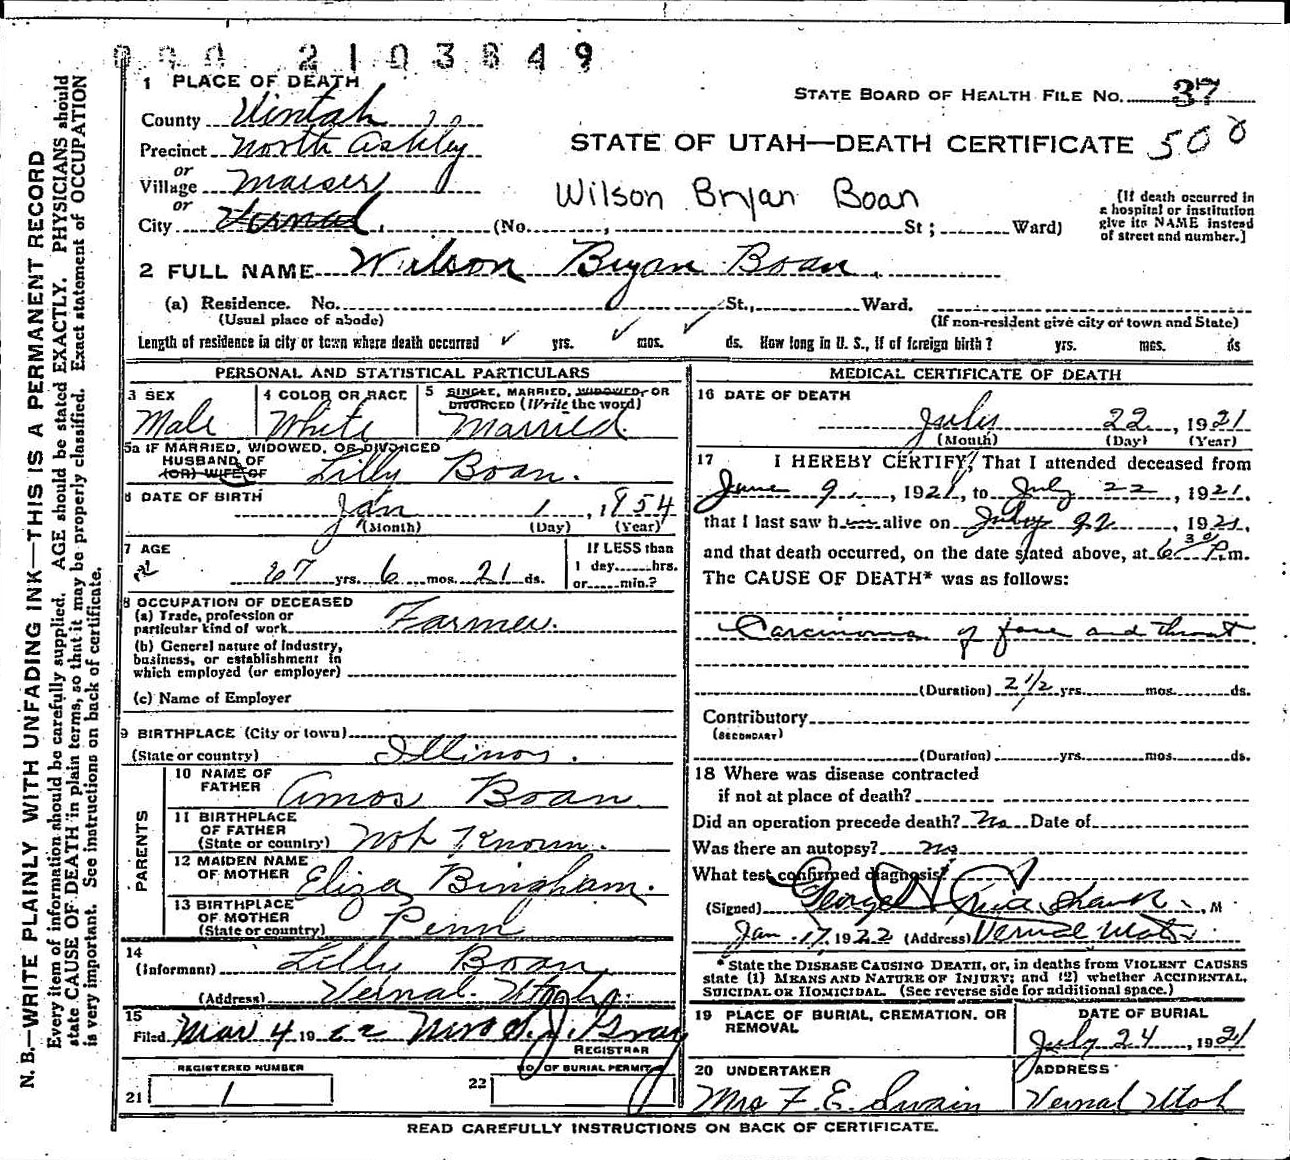 000 2103849
1 PLACE OF DEATH
STATE BOARD OF HEALTH FILE NO. 37
County Uintah
Precinct North Ashley
STATE OF UTAH—DEATH CERTIFICATE 500
or
Village Maeser
or
Wilson Bryan Boan
[If death occurred in
a hospital or institution
give its NAME instead
of street and number.]
City Vernal, (No. , St; Ward)
2 FULL NAME Wilson Bryan Boan
(a) Residence. No. St., Ward.
(Usual place of abode) (If non-resident give city or town and State)
Length of residence in city or town where death occurred ✓ yrs. ✓ mos. ✓ ds. How long in U. S., if of foreign birth? yrs. mos. ds
PERSONAL AND STATISTICAL PARTICULARS
3 SEX
Male
4 COLOR OR RACE
White
5 SINGLE, MARRIED, WIDOWED, OR
DIVORCED (Write the word)
Married
5a IF MARRIED, WIDOWED, OR DIVORCED
HUSBAND OF
(OR) WIFE OF Lilly Boan.
6 DATE OF BIRTH
Jan 1, 1854
(Month) (Day) (Year)
7 AGE
67 yrs. 6 mos. 21 ds.
If LESS than
1 day hrs.
or min.?
8 OCCUPATION OF DECEASED
(a) Trade, profession or
particular kind of work Farmer.
(b) General nature of industry,
business, or establishment in
which employed (or employer)
(c) Name of Employer
9 BIRTHPLACE (City or town)
(State or country) Illinois.
PARENTS
10 NAME OF
FATHER Amos Boan
11 BIRTHPLACE
OF FATHER
(State or country) Not Known.
12 MAIDEN NAME
OF MOTHER Eliza Bingham.
13 BIRTHPLACE
OF MOTHER
(State or country) Penn
14
(Informant) Lilly Boan
(Address) Vernal. Utah.
15
Filed Mar 4 1922 Mrs. S. J. Gray
REGISTRAR
REGISTERED NUMBER
21 1
NO. OF BURIAL PERMIT
22
MEDICAL CERTIFICATE OF DEATH
16 DATE OF DEATH
July 22, 1921
(Month) (Day) (Year)
17 I HEREBY CERTIFY, That I attended deceased from
June 9, 1921, to July 22, 1921.
that I last saw him alive on July 22, 1921,
and that death occurred, on the date stated above, at 6 30 P.m.
The CAUSE OF DEATH* was as follows:
Carcinoma of face and throat
(Duration) 2 1/2 yrs. mos. ds.
Contributory
(SECONDARY)
(Duration) yrs. mos. ds.
18 Where was disease contracted
if not at place of death?
Did an operation precede death? No Date of
Was there an autopsy? No
What test confirmed diagnosis?
(Signed) George, M
Jan. 17, 1922 (Address) Vernal Utah
* State the DISEASE CAUSING DEATH, or, in deaths from VIOLENT CAUSES
state (1) MEANS AND NATURE OF INJURY; and (2) whether ACCIDENTAL,
SUICIDAL OR HOMICIDAL. (See reverse side for additional space.)
19 PLACE OF BURIAL, CREMATION, OR
REMOVAL
DATE OF BURIAL
July 24, 1921
20 UNDERTAKER
Mrs F. E. Swain
ADDRESS
Vernal Utah
READ CAREFULLY INSTRUCTIONS ON BACK OF CERTIFICATE.
N. B.—WRITE PLAINLY WITH UNFADING INK—THIS IS A PERMANENT RECORD
Every item of information should be carefully supplied. AGE should be stated EXACTLY. PHYSICIANS should
state CAUSE OF DEATH in plain terms, so that it may be properly classified. Exact statement of OCCUPATION
is very important. See instructions on back of certificate.